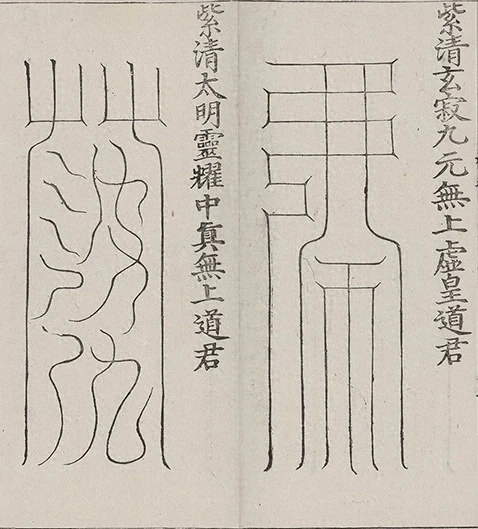 紫清玄寂九元無上虛皇道君
紫清太明靈耀中真無上道君